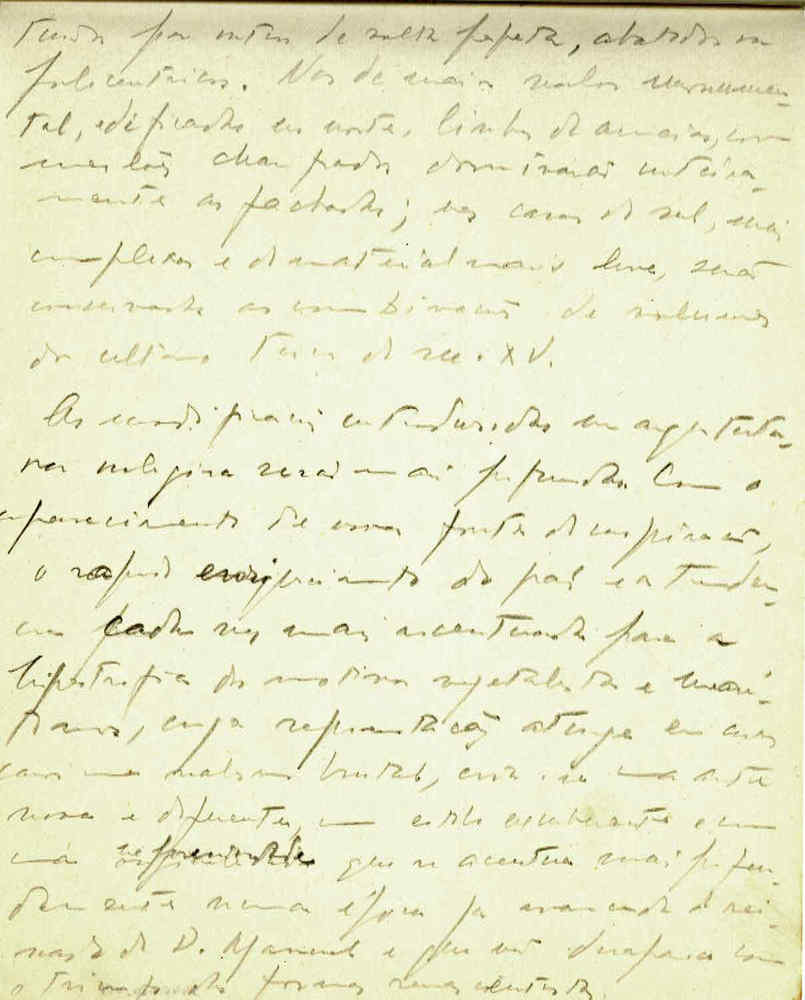 por de volta perfeita, abatidos ou
policentricos. Nos de maior valor monumen-
tal, edificados no norte, linhas de ameias, com
merlões chanfrados dominarão inteira-
mente as fachadas; nas casas do sul, mais
complexas e de material mais leve, serão
conservadas as combinações de volumes
do ultimo terço do sec. XV.
As modificações introduzidas na arquitectu-
ra religiosa serão mais profundas. Com o
aparecimento de novas fontes de inspiração,
o rapido enriquecimento do país e a tenden-
cia cada vez mais acentuada para a
hipertrofia dos motivos vegetalistas e mari-
timos, cuja representação atinge em certos
casos um realismo brutal, cria-se uma arte
nova e diferente, um estilo exuberante com
uma que se acentua mais profun-
damente numa época já avançada do rei-
nado de D. Manuel e que vai desaparecer com
o triunfo das formas renascentistas.